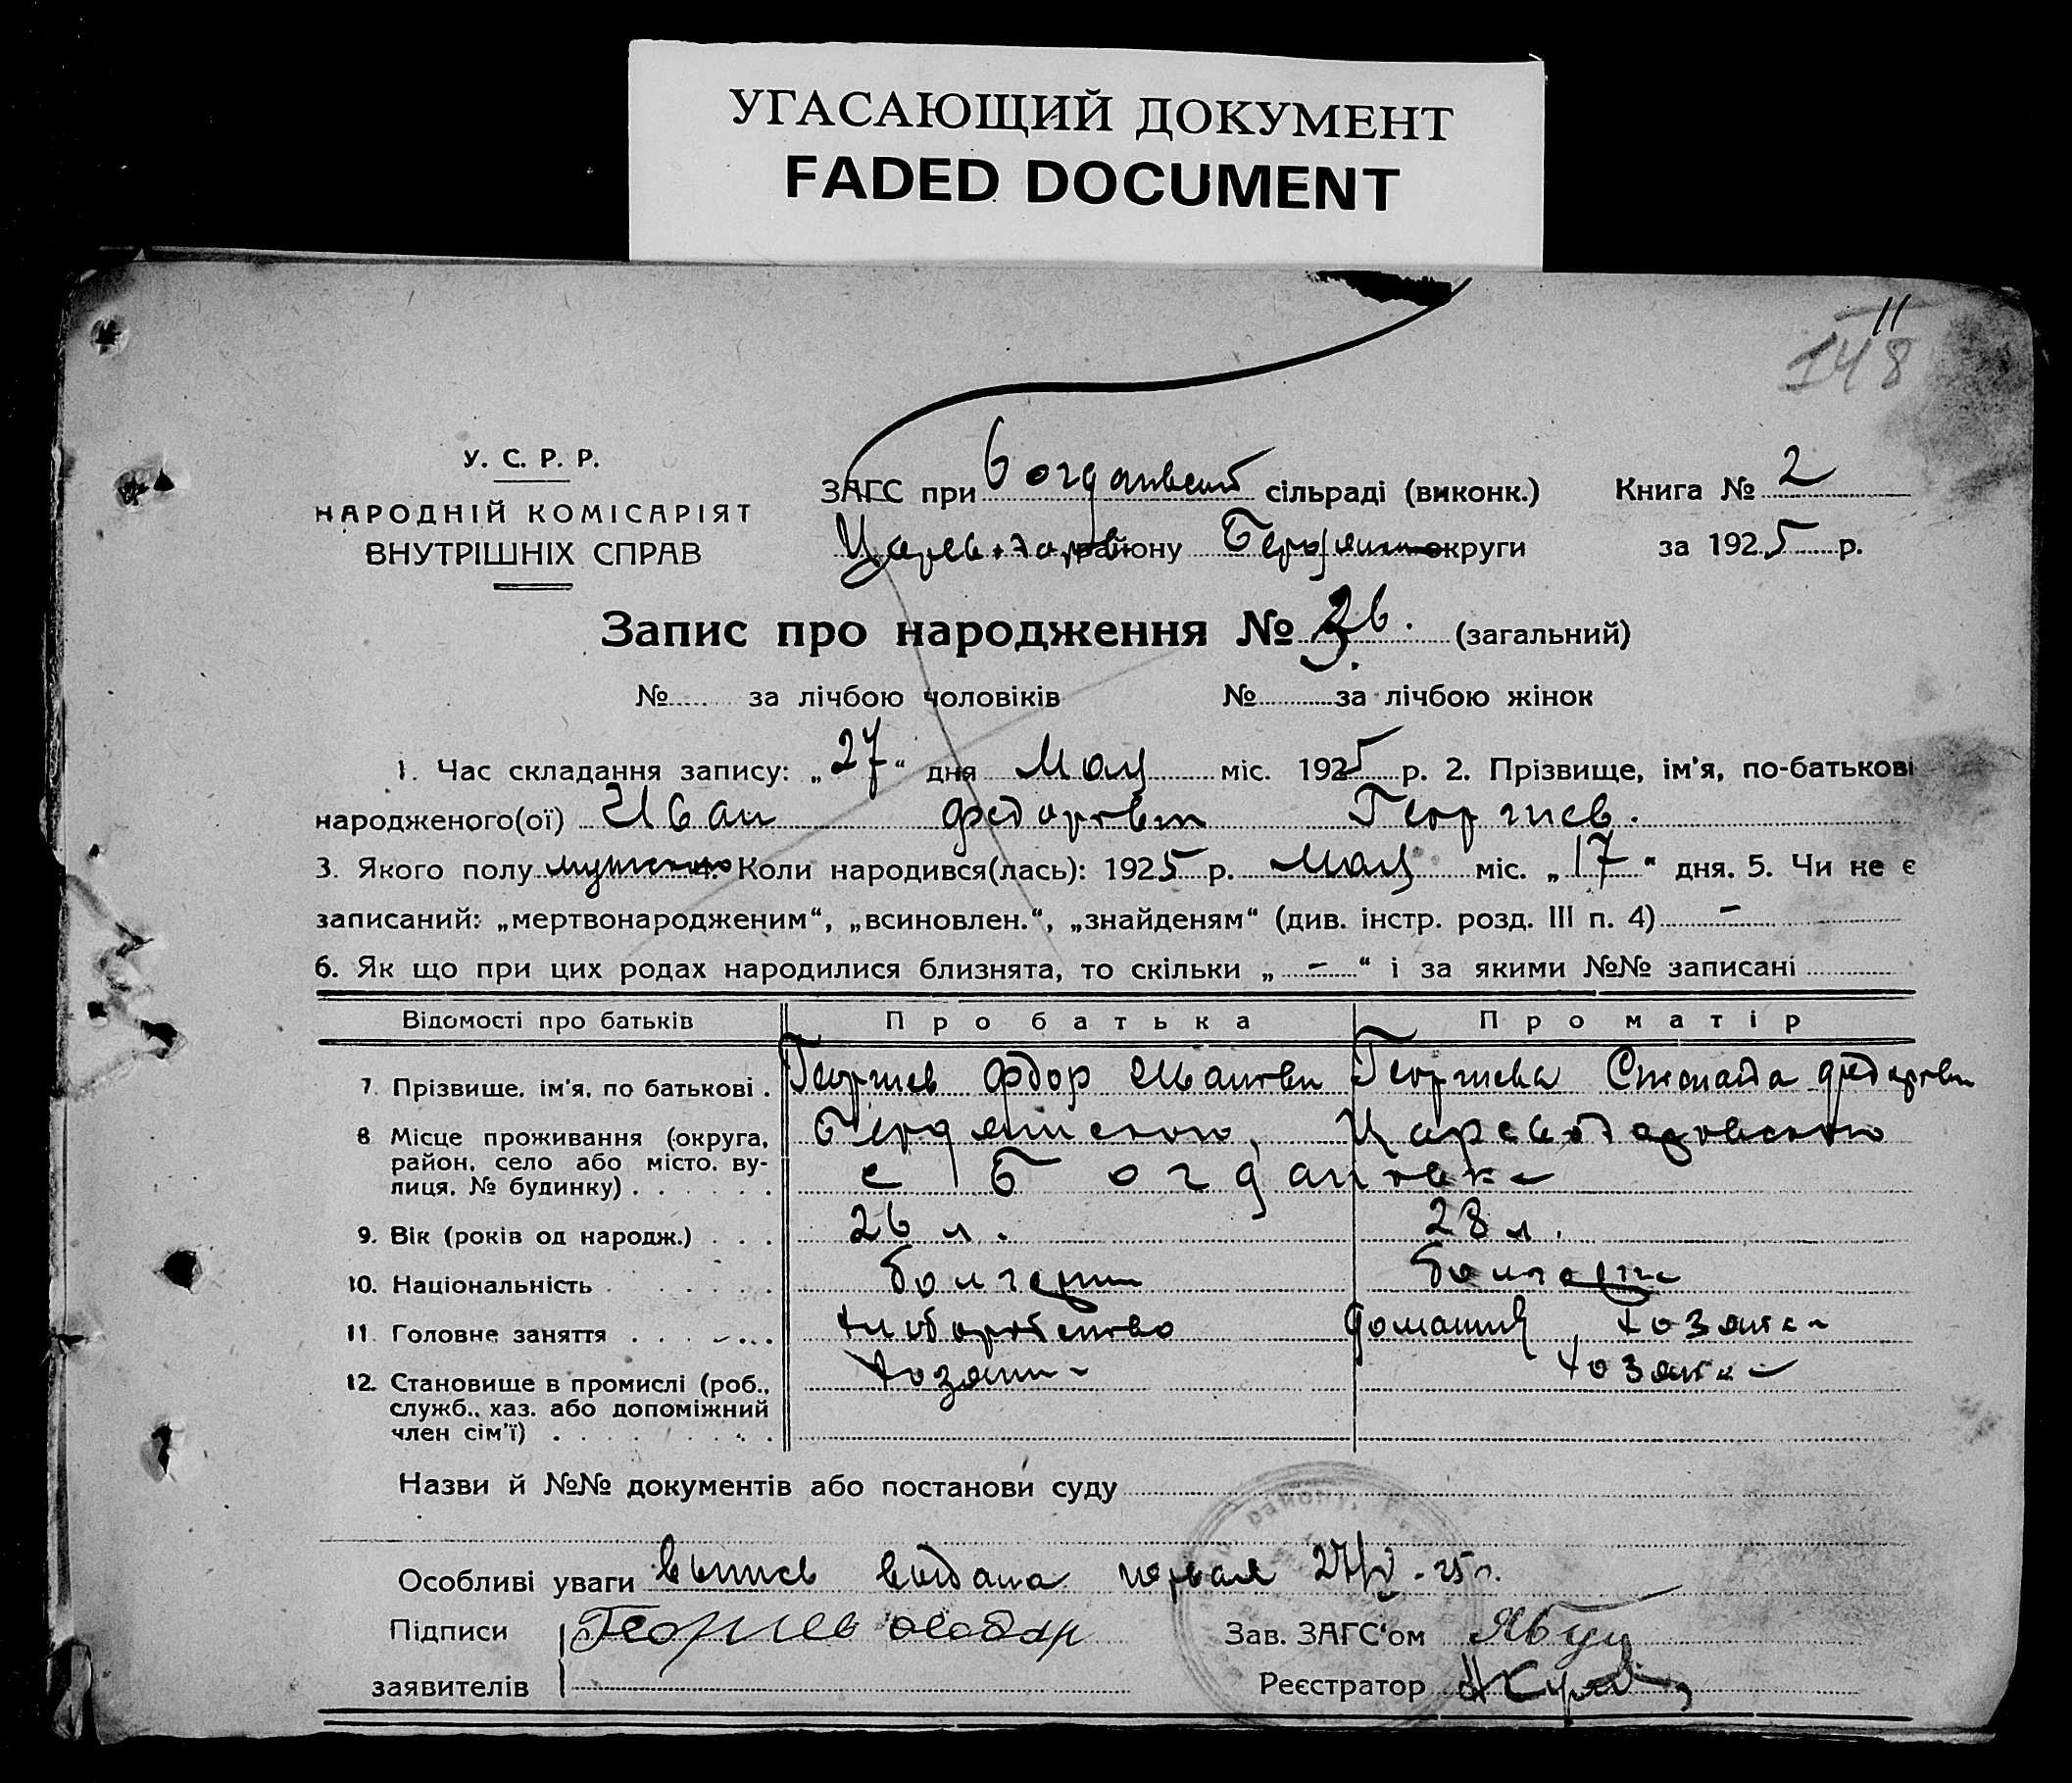 УГАСАЮЩИЙ ДОКУМЕНТ
FADED DOCUMENT
11
148
У. С. Р. Р.
НАРОДНІЙ КОМІСАРІЯТ
ВНУТРІШНІХ СПРАВ
ЗАГС при сільраді (виконк.) Книга № 2
району округи за 1925 р.
Запис про народження № 26. (загальний)
№ за лічбою чоловіків № за лічбою жінок
1. Час складання запису: „27“ дня Мая міс. 1925 р. 2. Прізвище, ім'я, по-батькові
народженого(ої) Иван Федорович Георгиев.
3. Якого полу 4. Коли народився(лась): 1925 р. Мая міс. „17“ дня. 5. Чи не є
записаний: „мертвонародженим“, „всиновлен.“, „знайденям“ (див. інстр. розд. III п. 4) –
6. Як що при цих родах народилися близнята, то скільки „ – “ і за якими №№ записані
Відомості про батьків Про батька Про матір
7. Прізвище, ім'я, по батькові . Георгиев Фдор Георгиева Федоровн
8 Місце проживання (округа, Бердянского, Цареводаровского
район, село або місто, ву- с Богдановка
лиця, № будинку) . . . . . .
9. Вік (років од народж.) . . . 26 л. 28 л.
10. Національність . . . . . болгарин болгарка
11. Головне заняття . . . . . хлеборобство хозяйка
12. Становище в промислі (роб., хозяин хозяйка
служб., хаз. або допоміжний
член сім'ї) . . . . . . . . .
Назви й №№ документів або постанови суду
району,
Особливі уваги выпись видана первая 27/V - 25 г.
Підписи Георгиев Зав. ЗАГС'ом
заявителів Реєстратор